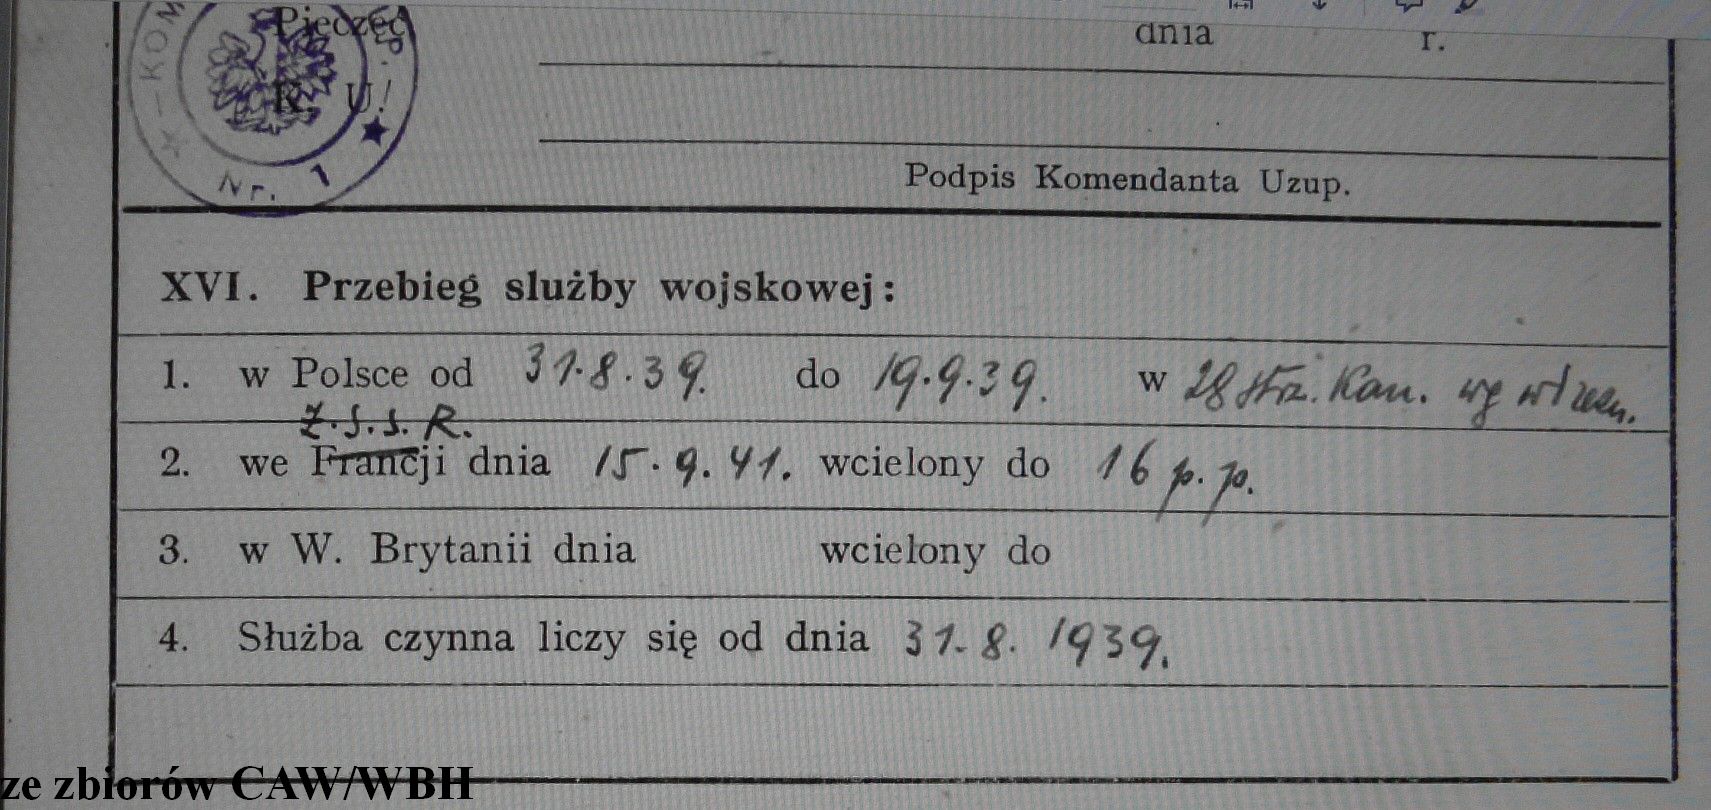 Pieczęć
dnia r.
K. U.
★ - KOM
Nr. 1 ★
Podpis Komendanta Uzup.
XVI. Przebieg slużby wojskowej:
1. w Polsce od 31.8.39. do 19.9.39. w 28 strz. Kan.
Z.S.S.R.
2. we Francji dnia 15.9.41. wcielony do 16 p.p.
3. w W. Brytanii dnia wcielony do
4. Służba czynna liczy się od dnia 31.8. 1939.
ze zbiorów CAW/WBH